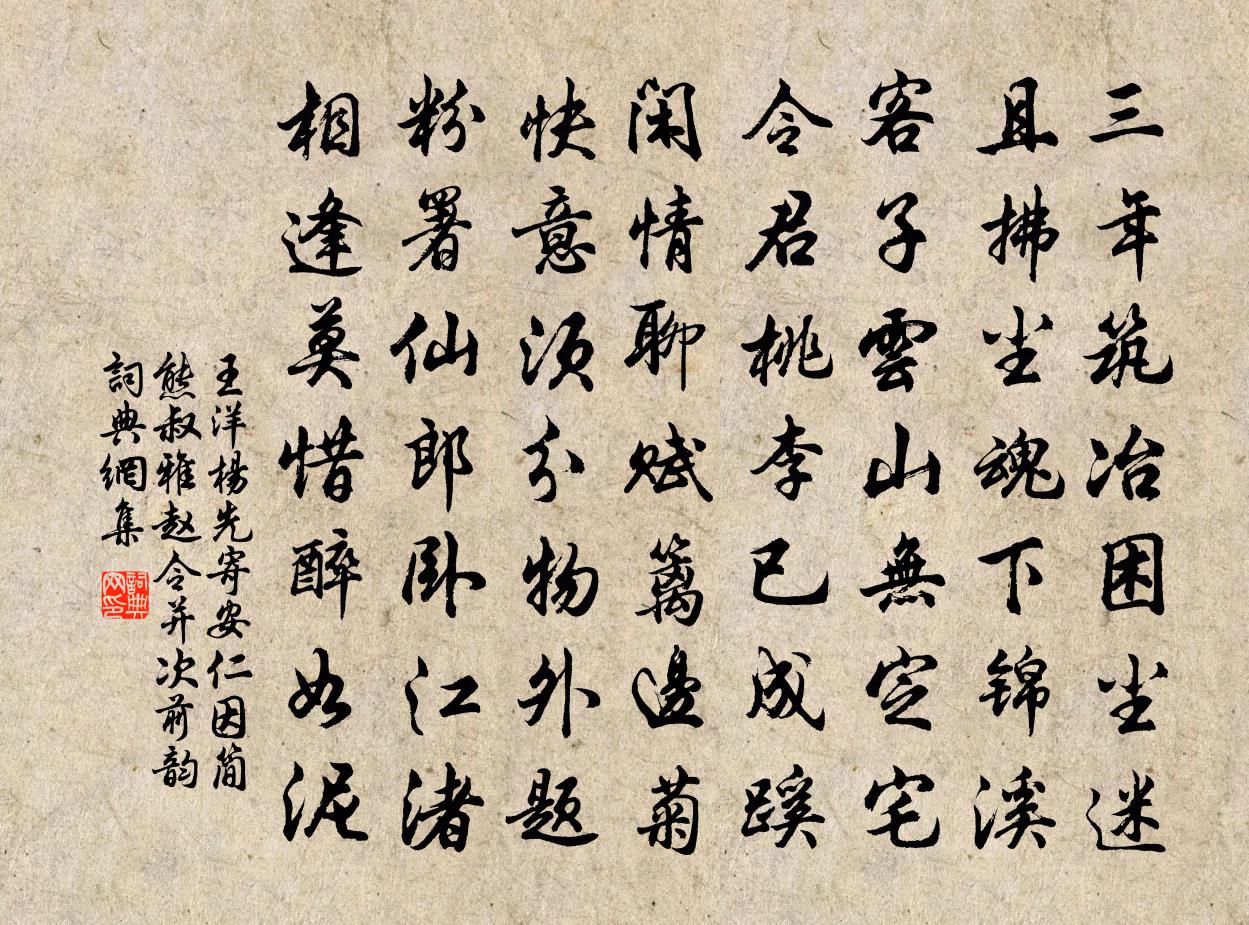 三年筑冶困尘迷
且拂尘魂下锦溪
客子雲山無定宅
令君桃李已成蹊
闲情聊赋篱邊菊
快意须分物外题
粉署仙郎卧江渚
相逢莫惜醉如泥
王洋楊先寄安仁因简
熊叔雅赵令并次前韵
詞典網集
詞典网印